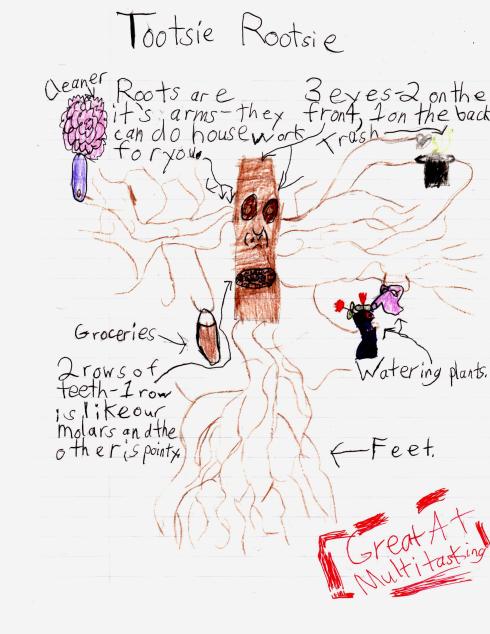 Tootsie Rootsie
Cleaner
Roots are
it's arms-they
can do house work
for you.
3 eyes-2 on the
front, 1 on the back
Trash
Groceries
2 rows of
teeth-1 row
is like our
molars and the
other is pointy.
Watering plants.
Feet.
Great At
Multitasking